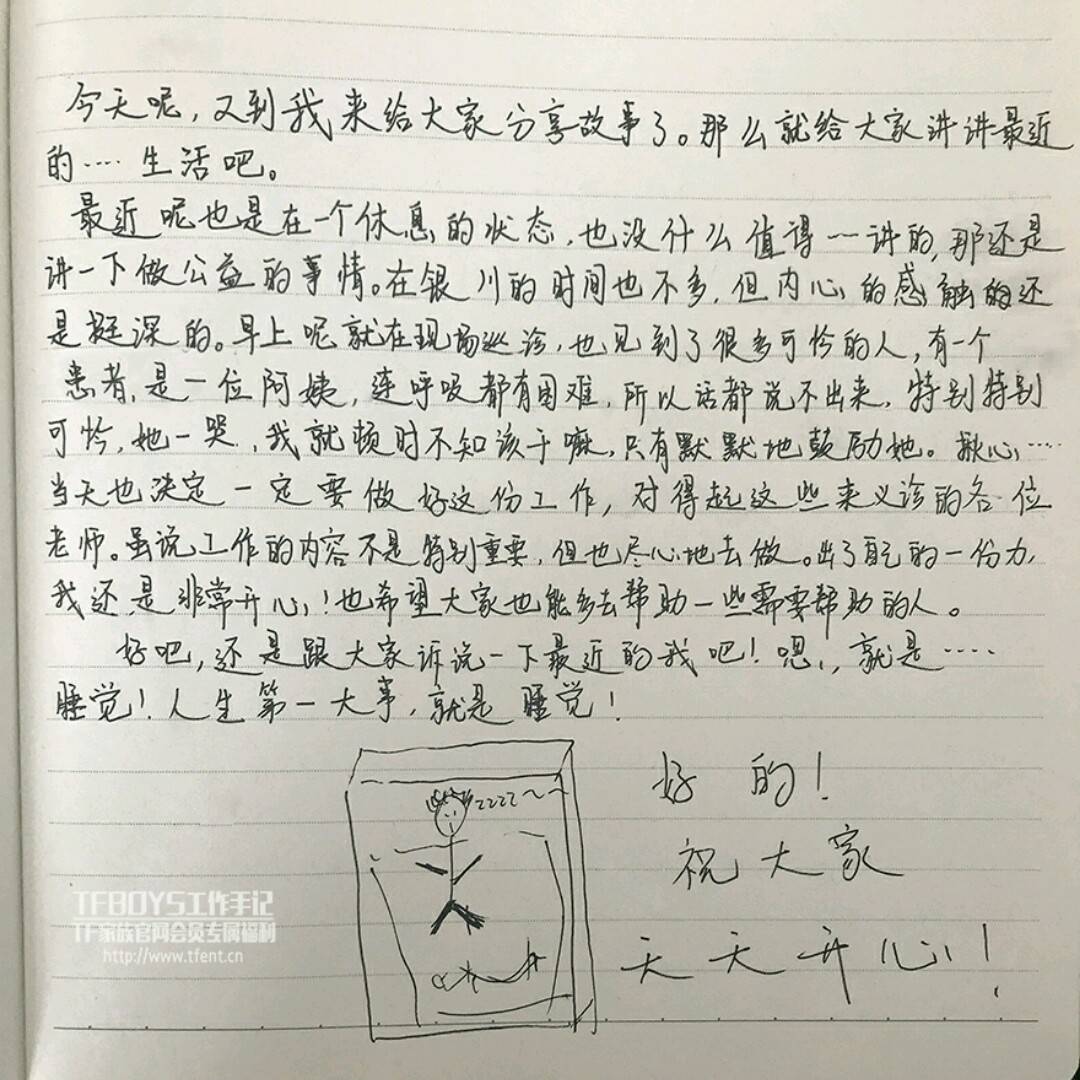 今天呢，又到我来给大家分享故事了。那么就给大家讲讲最近
的····生活吧。
最近呢也是在一个休息的状态，也没什么值得一讲的，那还是
讲一下做公益的事情。在银川的时间也不多，但内心的感触的还
是挺深的。早上呢就在现场巡诊，也见到了很多可怜的人，有一个
患者，是一位阿姨，连呼吸都有困难，所以话都说不出来，特别特别
可怜，她一哭，我就顿时不知该干嘛，只有默默地鼓励她。揪心····
当天也决定一定要做好这份工作，对得起这些来义诊的各位
老师。虽说工作的内容不是特别重要，但也尽心地去做。出了自己的一份力，
我还是非常开心！也希望大家也能多去帮助一些需要帮助的人。
好吧，还是跟大家诉说一下最近的我吧！嗯，就是·····
睡觉！人生第一大事，就是睡觉！
zzzz~~
好的！
祝大家
天天开心！
TFBOYS工作手记
TF家族官网会员专属福利
http://www.tfent.cn